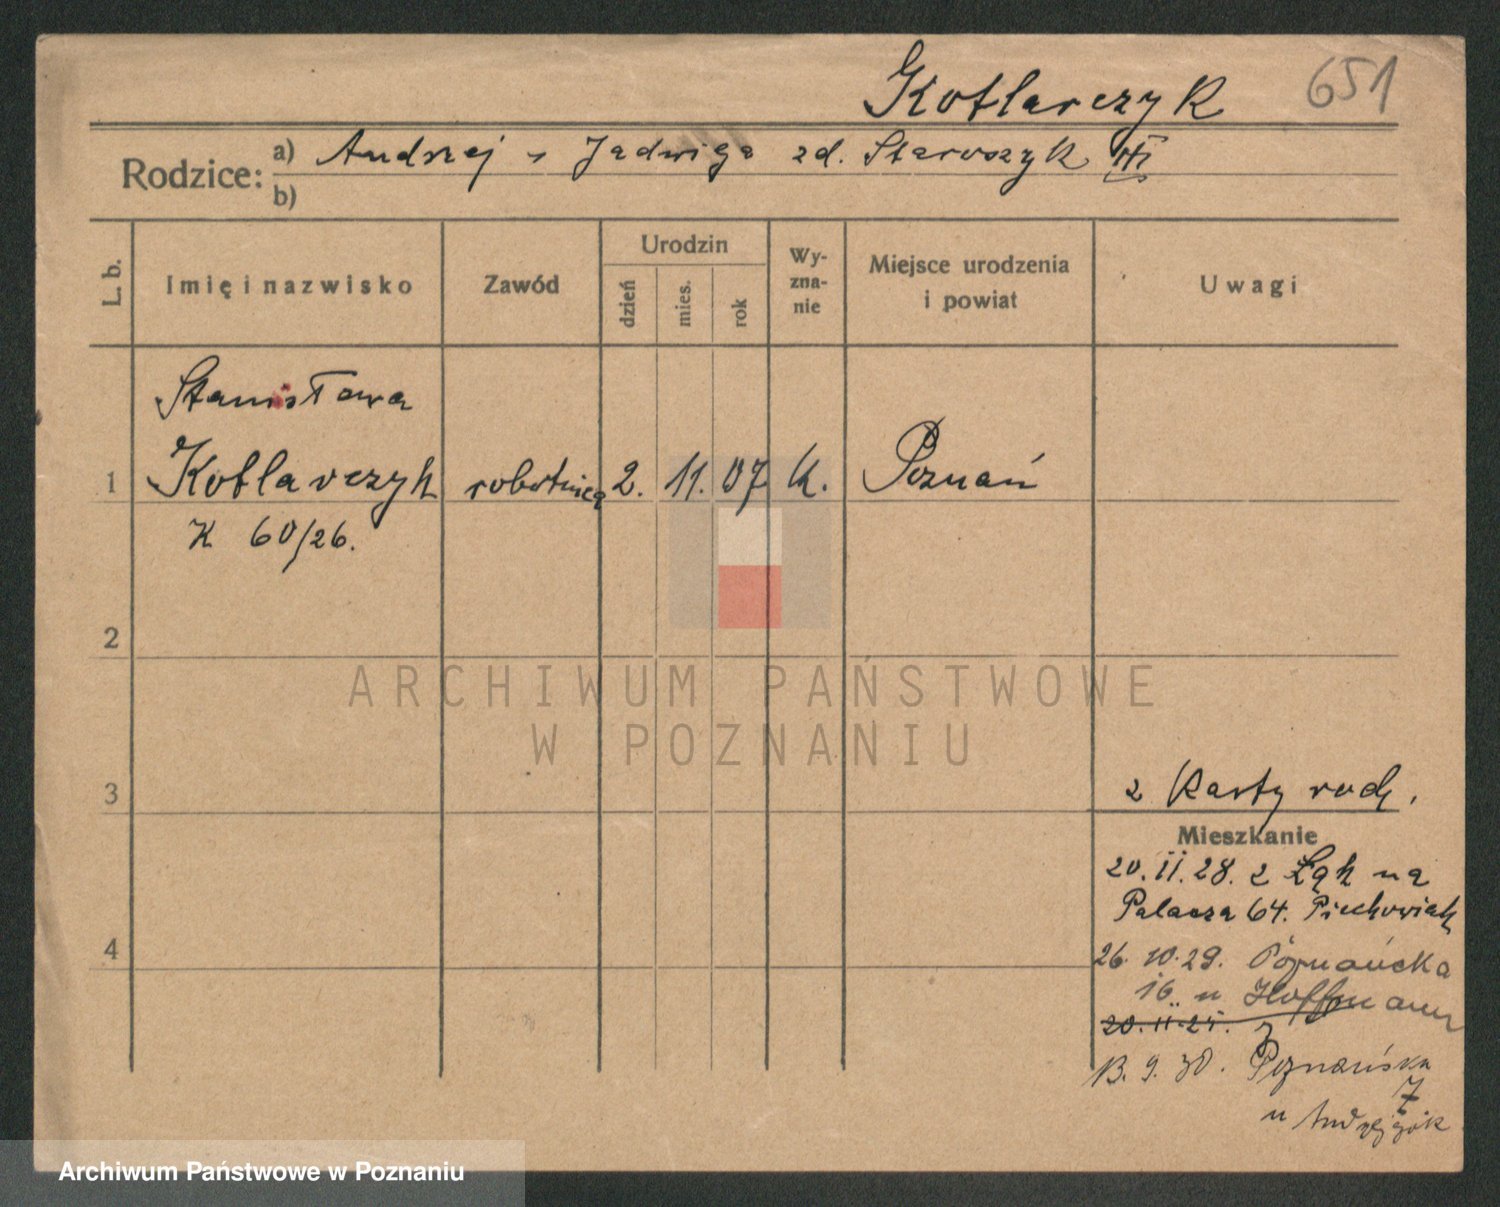 Kotlarczyk 651
Rodzice: a) Andrzej Jadwiga zd. Staroszyk
b)
L. b. Imię i nazwisko Zawód Urodzin dzień mies. rok Wyznanie Miejsce urodzenia i powiat Uwagi
Stanisława
1 Kotlarczyk robotnica 2. 11. 07 k. Poznań
K 60/26.
2
3
z Karty rodz.
Mieszkanie
20.11.28. z Łąk na
Palacza 64. Piechowiak
4
26.10.29. Poznańska
16 u Hoffmann
20.11.25. z
13.9.30. Poznańska
7
u
ARCHIWUM PAŃSTWOWE
W POZNANIU
Archiwum Państwowe w Poznaniu